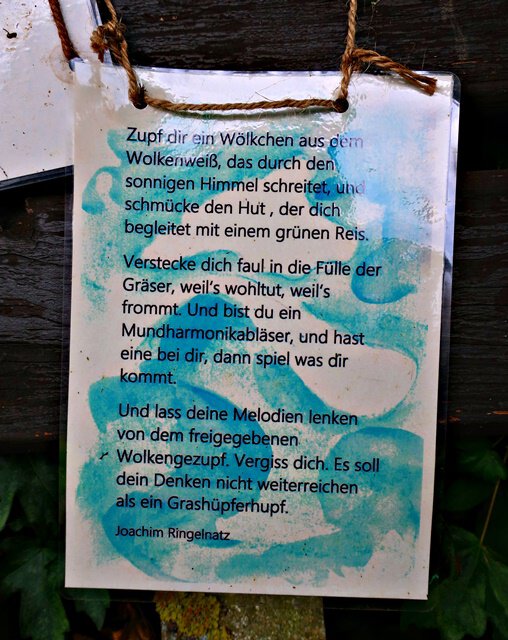 Zupf dir ein Wölkchen aus dem
Wolkenweiß, das durch den
sonnigen Himmel schreitet, und
schmücke den Hut , der dich
begleitet mit einem grünen Reis.
Verstecke dich faul in die Fülle der
Gräser, weil's wohltut, weil's
frommt. Und bist du ein
Mundharmonikabläser, und hast
eine bei dir, dann spiel was dir
kommt.
Und lass deine Melodien lenken
von dem freigegebenen
Wolkengezupf. Vergiss dich. Es soll
dein Denken nicht weiterreichen
als ein Grashüpferhupf.
Joachim Ringelnatz